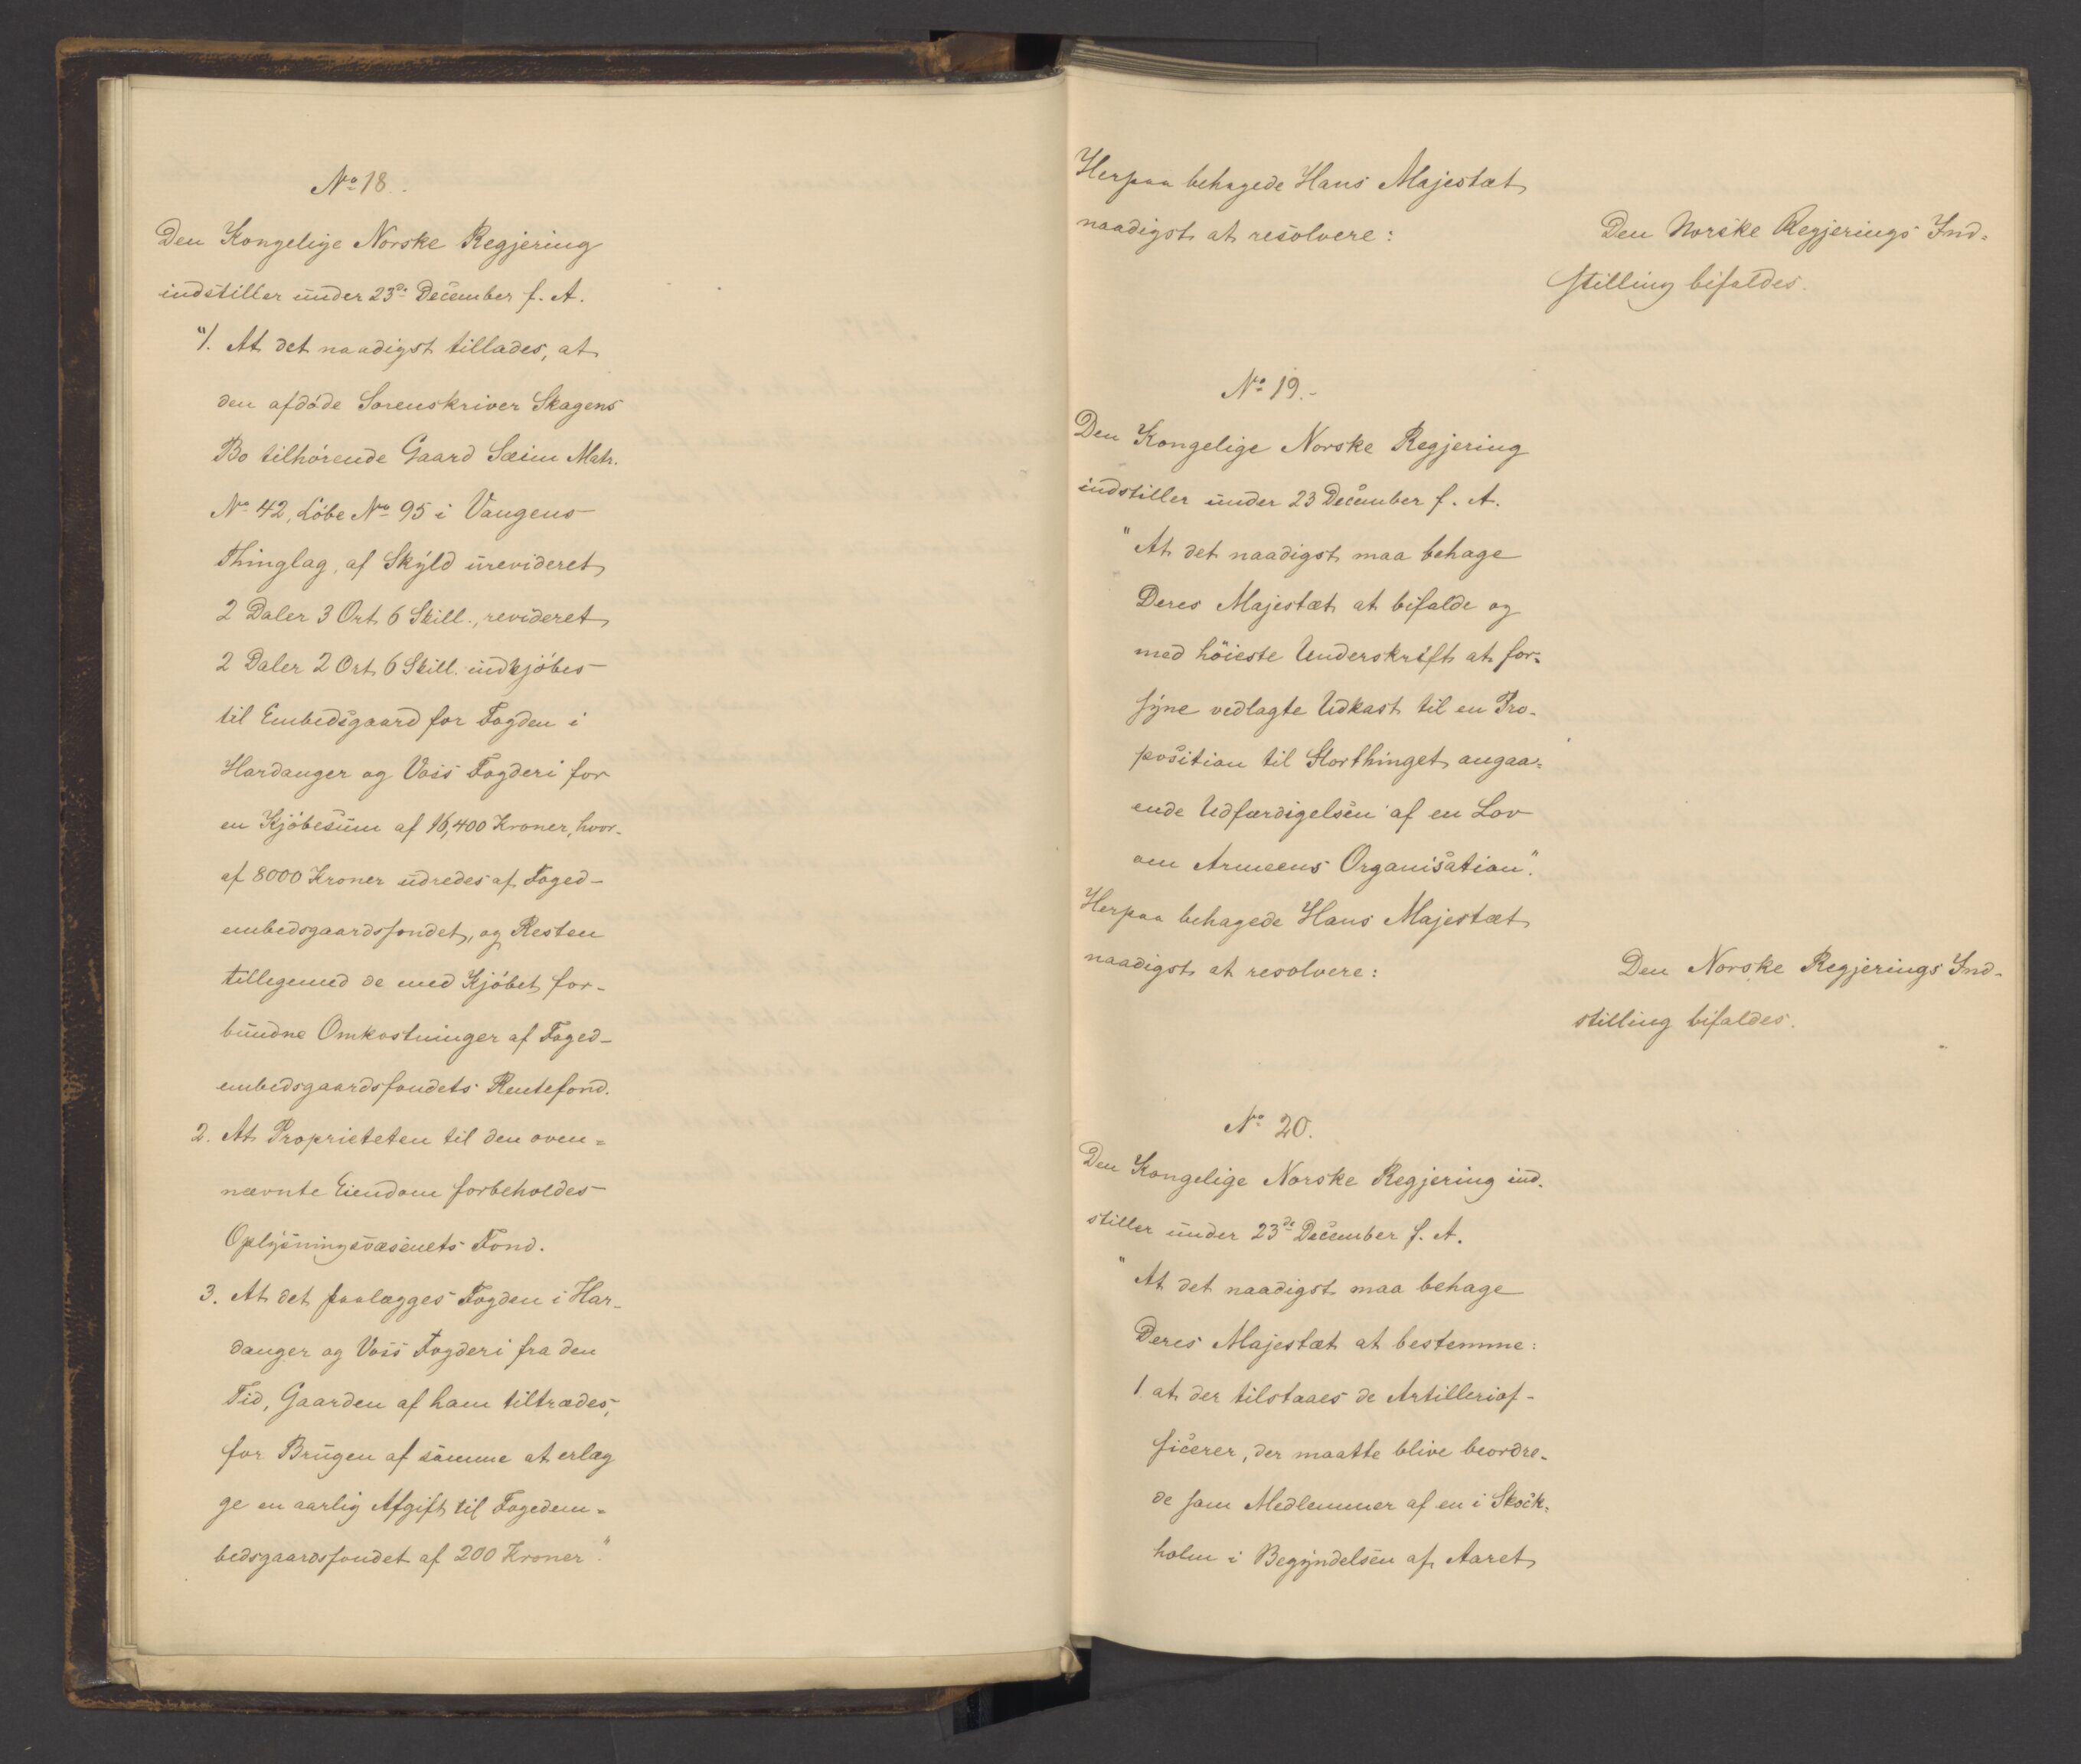 No 18.
Den Kongelige Norske Regjering
indstiller under 23de December f. A.
"1. At det naadigst tillades, at
den afdøde Sorenskriver Skagens
Bo tilhørende Gaard Sæim Matr.
No 42, Løbe No 95 i Vangens
Thinglag, af Skyld urevideret
2 Daler 3 Ort 6 Skill., revideret
2 Daler 2 Ort 6 Skill. indkjøbes
til Embedsgaard for Fogden i
Hardanger og Voss Fogderi for
en Kjøbesum af 16,400 Kroner, hvor-
af 8000 Kroner udredes af Foged-
embedsgaardsfondet, og Resten
tilligemed de med Kjøbet for-
bundne Omkostninger af Foged-
embedsgaardsfondets Rentefond.
2. At Proprieteten til den oven-
nævnte Eiendom forbeholdes
Oplysningsvæsenets Fond.
3. At det paalægges Fogden i Har-
danger og Voss Fogderi fra den
Tid, Gaarden af ham tiltrædes,
for Brugen af samme at erlæg
ge en aarlig Afgift til Fogedem-
bedsgaardsfondet af 200 Kroner."
Herpaa behagede Hans Majestæt
naadigst at resolvere:
Den Norske Regjerings Ind-
stilling bifaldes.
No 19.
Den Kongelige Norske Regjering
indstiller under 23 December f. A.
"At det naadigst maa behage
Deres Majestæt at bifalde og
med höieste Underskrift at for-
syne vedlagte Udkast til en Pro-
position til Storthinget angaa-
ende Udfærdigelsen af en Lov
om Armeens Organisation".
Herpaa behagede Hans Majestæt
naadigst at resolvere:
Den Norske Regjerings Ind-
stilling bifaldes.
No 20.
Den Kongelige Norske Regjering ind-
stiller under 23de December f. A.
"At det naadigst maa behage
Deres Majestæt at bestemme:
1. at der tilstaaes de Artilleriof-
ficerer, der maatte blive beordre-
de som Medlemmer af en i Stock-
holm i Begyndelsen af Aaret